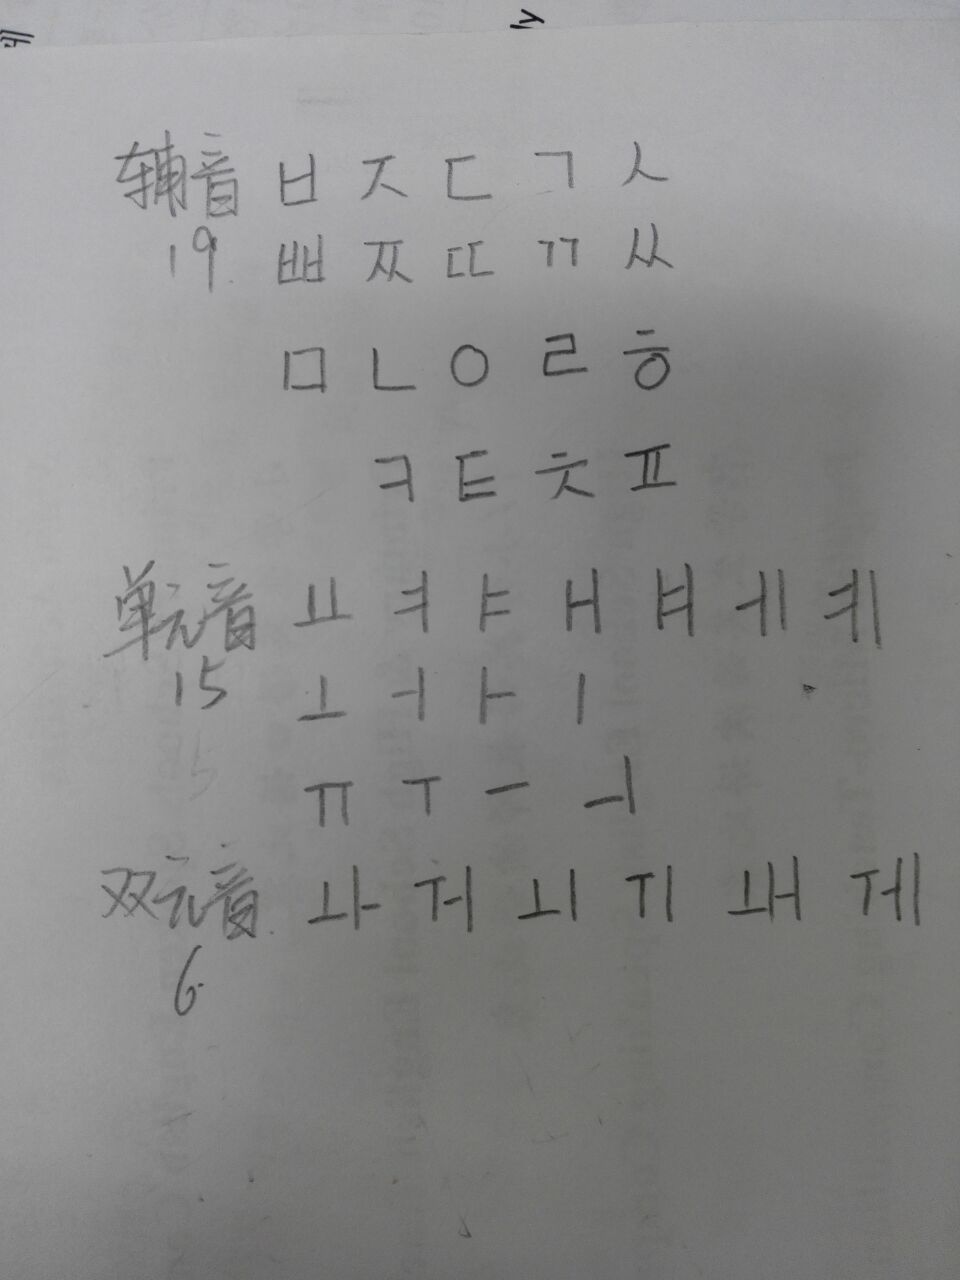 辅音 ㅂ ㅈ ㄷ ㄱ ㅅ
19 ㅃ ㅉ ㄸ ㄲ ㅆ
ㅁ ㄴ ㅇ ㄹ ㅎ
ㅋ ㅌ ㅊ ㅍ
单元音 ㅛ ㅕ ㅑ ㅐ ㅒ ㅔ ㅖ
15 ㅗ ㅓ ㅏ ㅣ
ㅠ ㅜ ㅡ ㅢ
双元音 ㅘ ㅝ ㅚ ㅟ ㅙ ㅞ
6